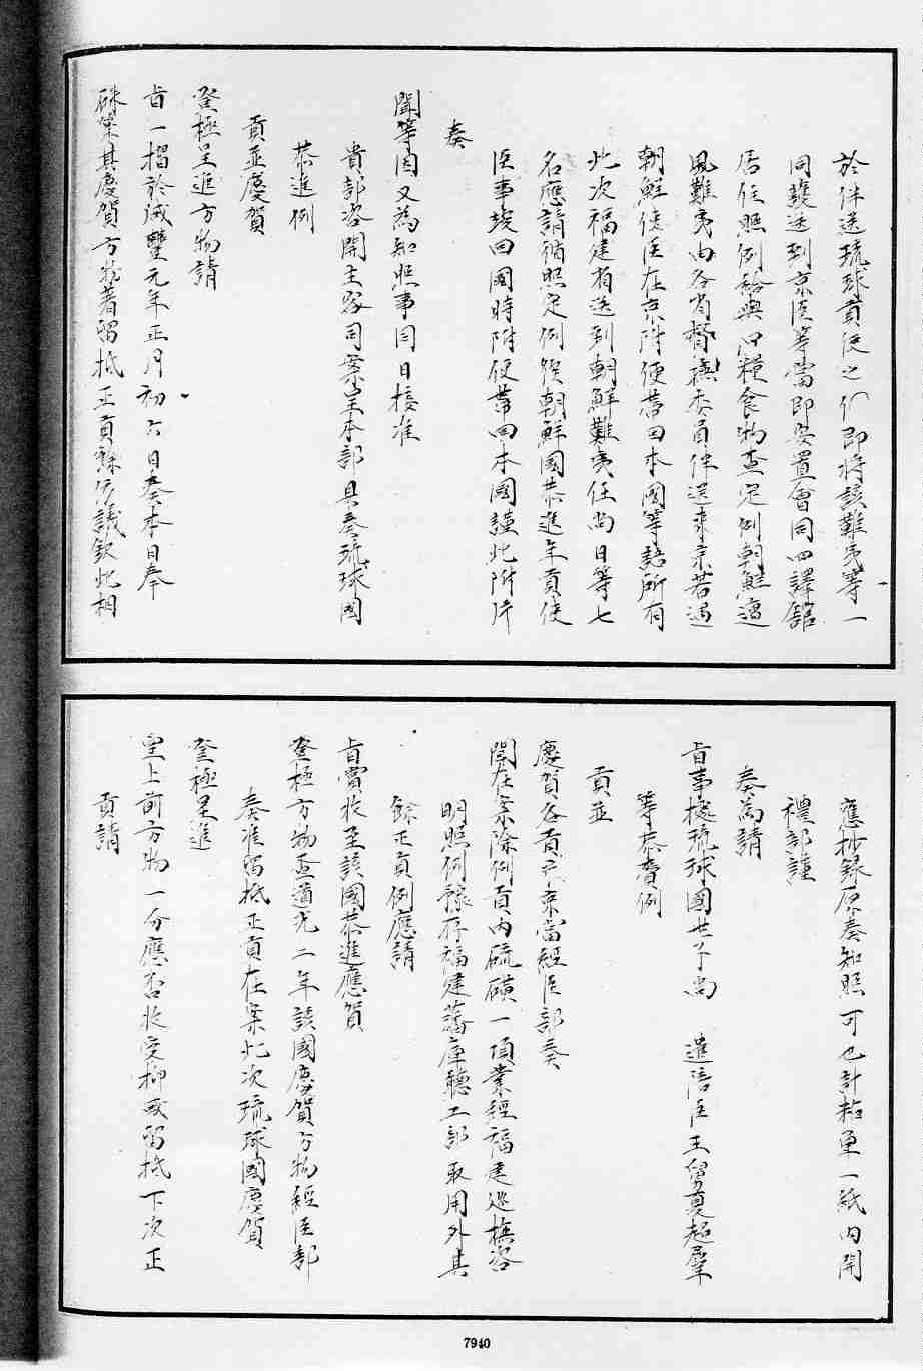 於伴送琉球貢使之便即將該難夷等一
同護送到京臣等當即安置會同四譯館
居住照例給與口糧食物查定例朝鮮遭
風難夷由各省督撫委員伴送來京若遇
朝鮮使臣在京附便帶回本國等語所有
此次福建省送到朝鮮難夷任尚日等七
名應請循照定例俟朝鮮國恭進年貢使
臣事竣回國時附便帶回本國謹此附片
奏
聞等因又為知照事同日接准
貴部咨開主客司案呈本部具奏琉球國
恭進例
貢並慶賀
登極呈進方物請
旨一摺於咸豐元年正月初六日奏本日奉
硃筆其慶賀方物著留抵正貢餘依議欽此相
應抄錄原奏知照可也計粘單一紙內開
禮部謹
奏為請
旨事據琉球國世子尚 遣陪臣王舅夏超羣
等恭賫例
貢並
慶賀各貢到京當經臣部奏
聞在案除例貢內硫磺一項業經福建巡撫咨
明照例豫存福建藩庫聽工部取用外其
餘正貢例應請
旨賞收至該國恭進慶賀
登極方物查道光二年該國慶賀方物經臣部
奏准留抵正貢在案此次琉球國慶賀
登極呈進
皇上前方物一分應否收受抑或留抵下次正
貢請
7940